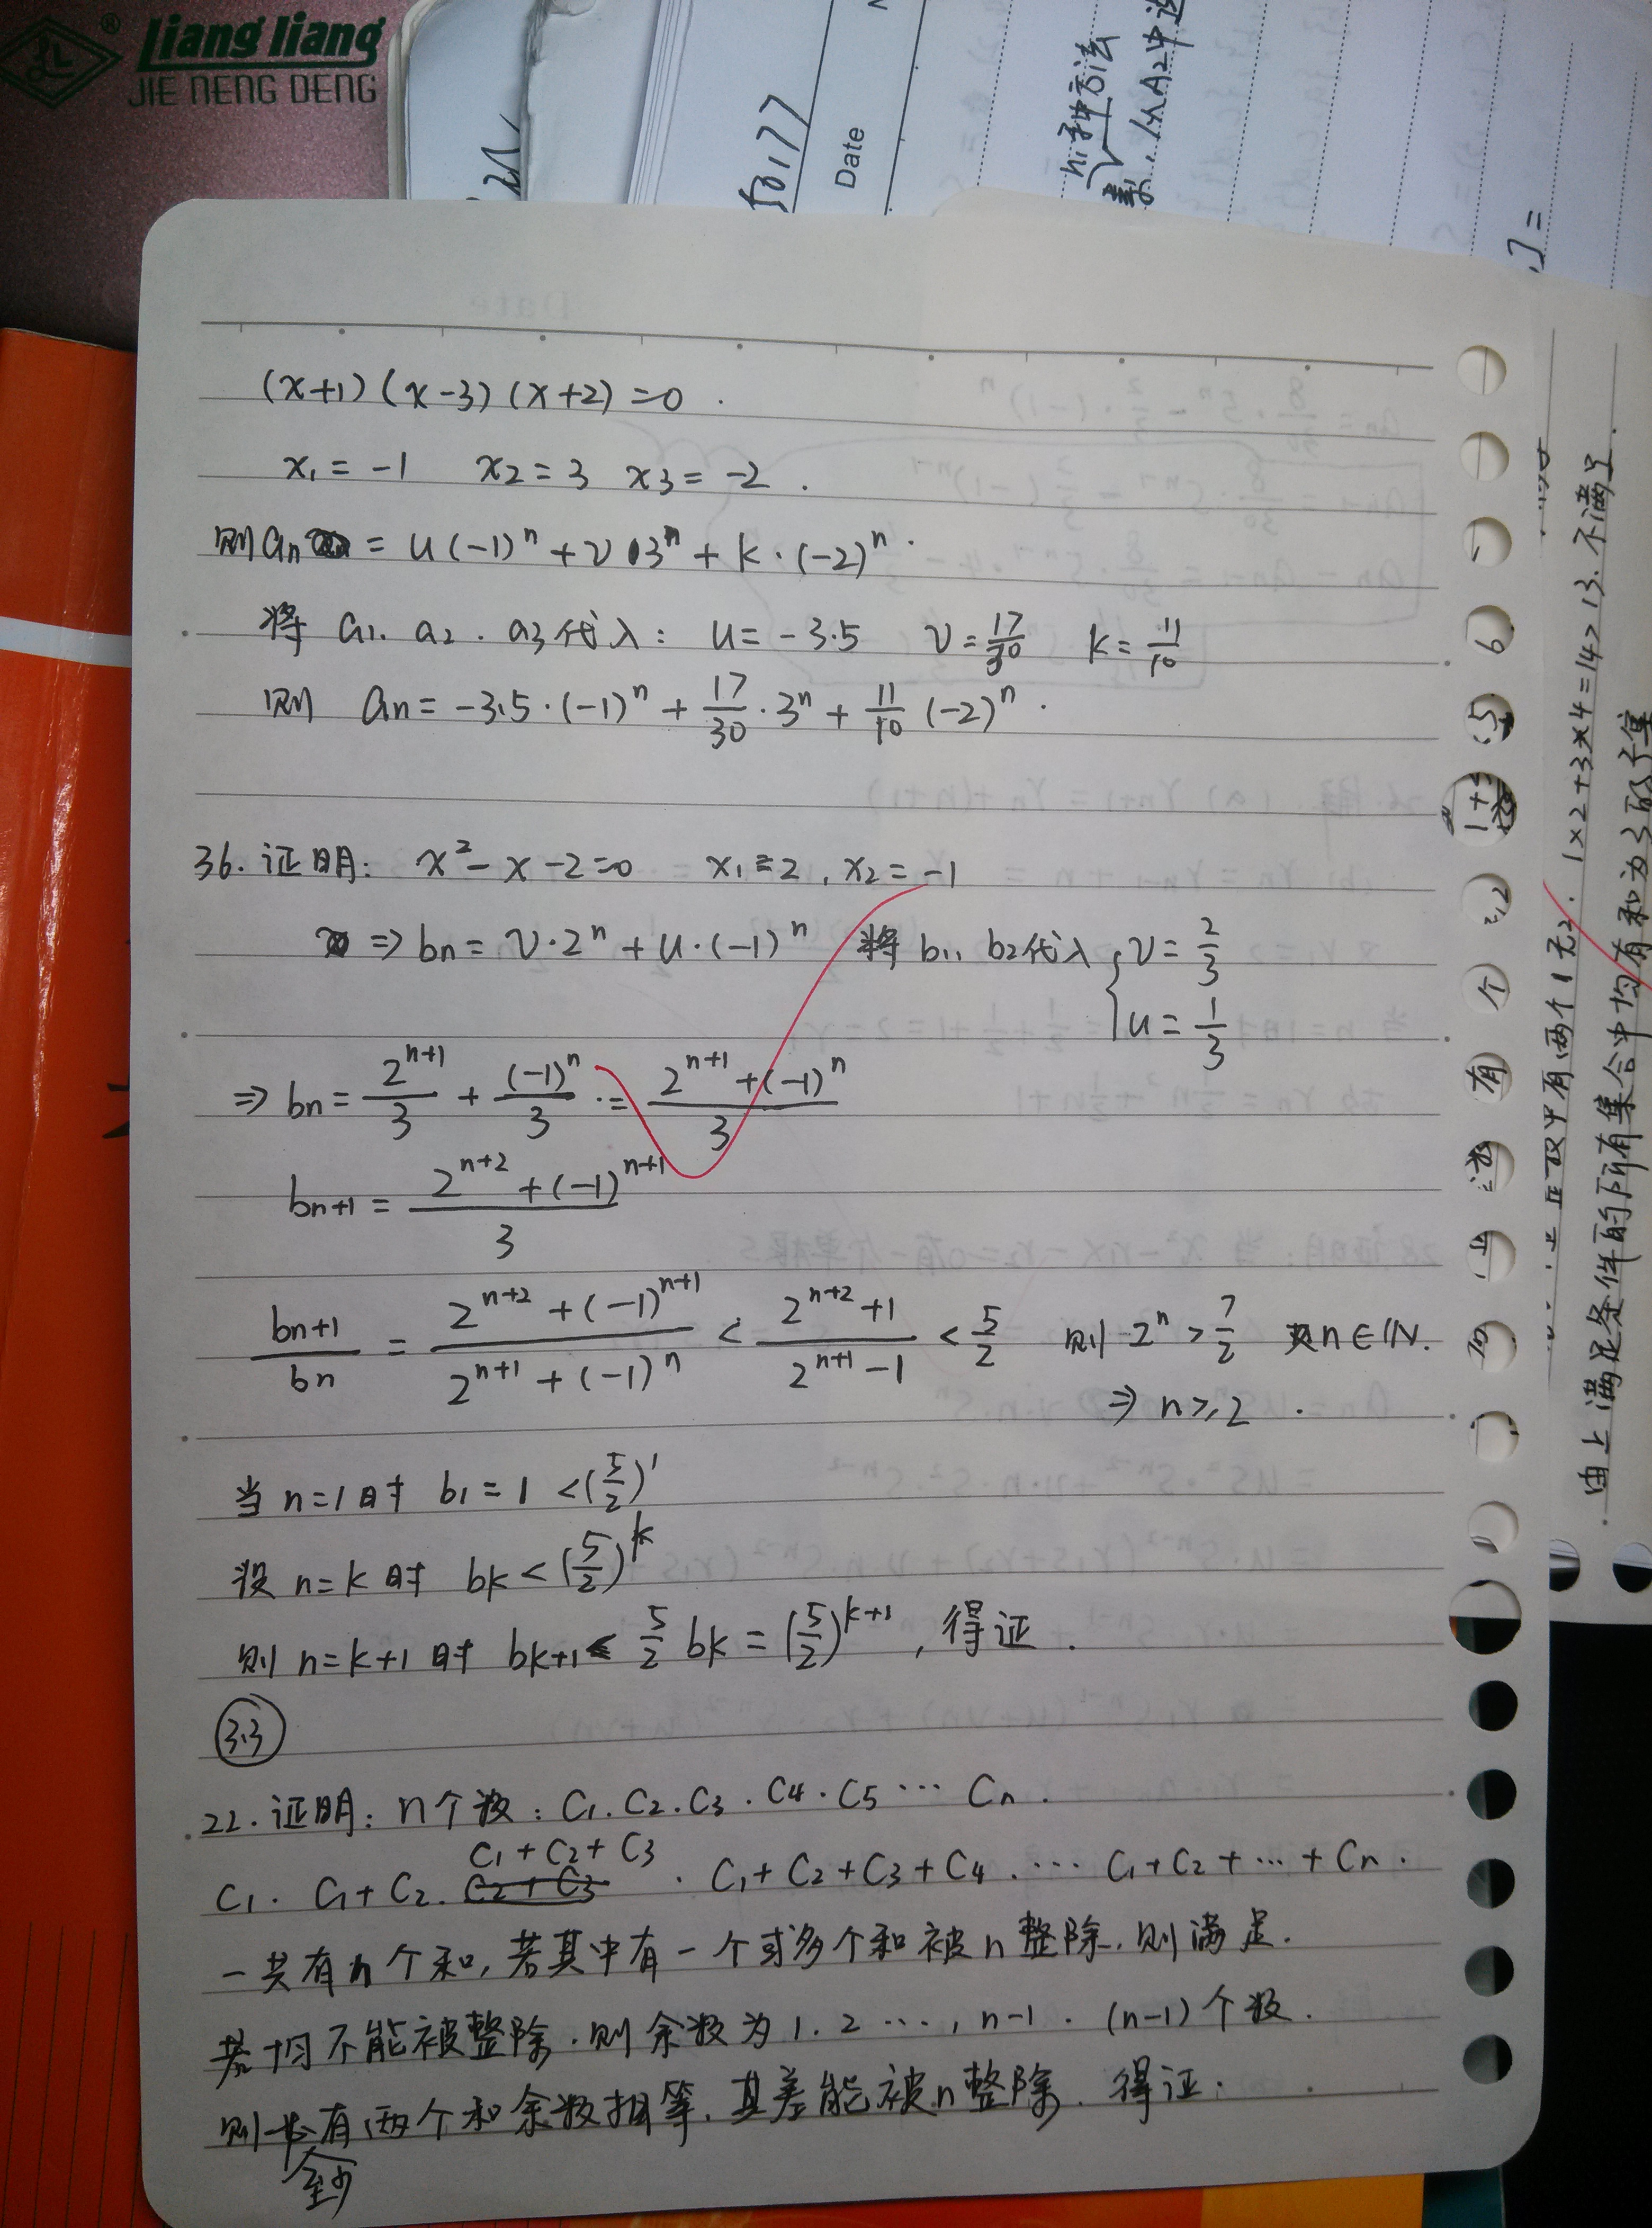 Liang liang
JIE NENG DENG
Date
(x+1)(x-3)(x+2)=0.
x₁=-1 x₂=3 x₃=-2.
则aₙ=u(-1)ⁿ+v·3ⁿ+k·(-2)ⁿ.
将 a₁. a₂. a₃代入: u=-3.5 v=17/30 k=11/10
则 aₙ=-3.5·(-1)ⁿ+17/30·3ⁿ+11/10(-2)ⁿ.
36. 证明: x²-x-2=0 x₁=2, x₂=-1
⇒ bₙ=v·2ⁿ+u·(-1)ⁿ 将 b₁, b₂代入 { v=2/3
u=1/3
⇒ bₙ=2ⁿ⁺¹/3+(-1)ⁿ/3=(2ⁿ⁺¹+(-1)ⁿ)/3
bₙ₊₁=(2ⁿ⁺²+(-1)ⁿ⁺¹)/3
bₙ₊₁/bₙ=(2ⁿ⁺²+(-1)ⁿ⁺¹)/(2ⁿ⁺¹+(-1)ⁿ)<(2ⁿ⁺²+1)/(2ⁿ⁺¹-1)<5/2 则 2ⁿ>7/2 又n∈N.
⇒ n≥2.
当 n=1时 b₁=1<(5/2)¹
设 n=k时 bₖ<(5/2)ᵏ
则 n=k+1时 bₖ₊₁< 5/2 bₖ=(5/2)ᵏ⁺¹, 得证.
3.3
22. 证明: n个数: C₁. C₂. C₃. C₄. C₅ … Cₙ.
C₁+C₂+C₃
C₁. C₁+C₂. C₂+C₃. C₁+C₂+C₃+C₄. … C₁+C₂+…+Cₙ.
一共有n个和, 若其中有一个或多个和被n整除, 则满足.
若均不能被整除. 则余数为1. 2 …, n-1. (n-1)个数.
则必有两个和余数相等, 其差能被n整除. 得证.
至少
1×2+3×4=14>13. 不满足.
由上满足条件的所有集合中均有和为3的子集